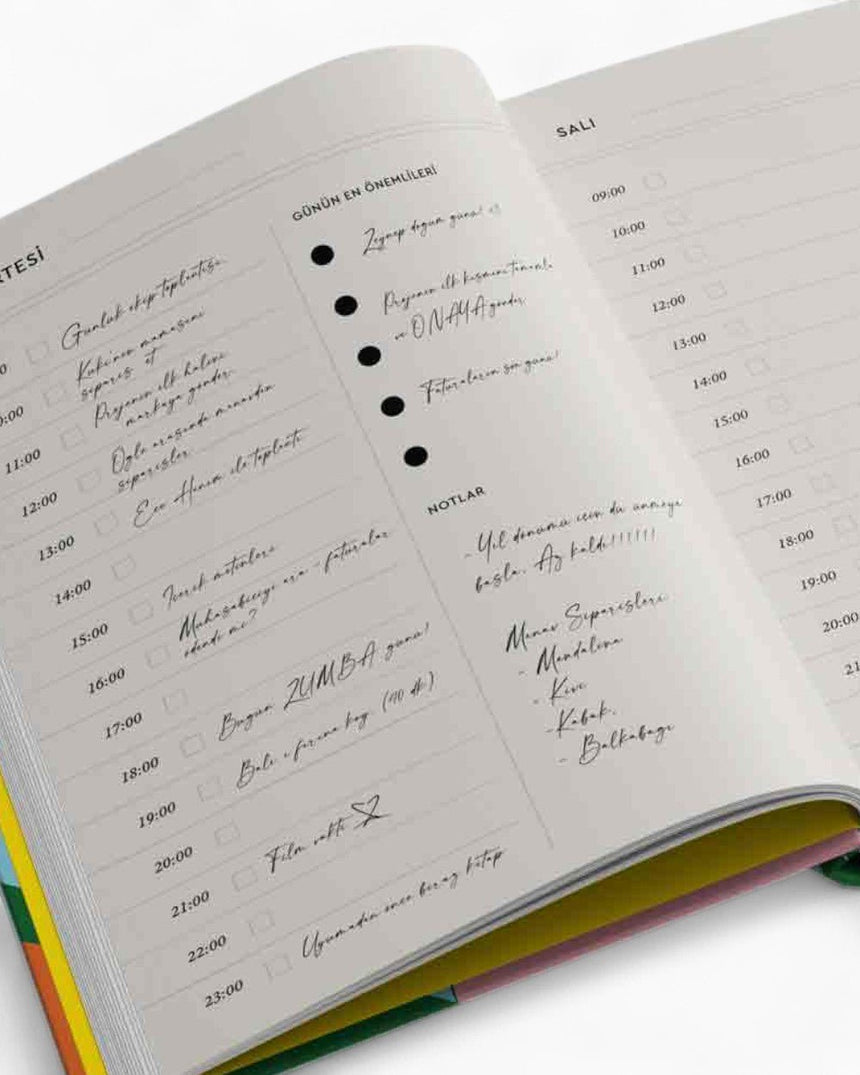 RTESİ
0
Günlük ekip toplantısı.
0:00
Kuki'nin mamasını
sipariş et
11:00
Projenin ilk halini
markaya gönder.
12:00
Öğle arasında manavdan
siparişler.
13:00
Ece Hanım ile toplantı
14:00
15:00
İçerik metinleri
16:00
Muhasebeciyi ara - faturalar
ödendi mi?
17:00
18:00
Bugün ZUMBA günü!
19:00
Balı fırına koy. (40 dk)
20:00
21:00
Film vakti
22:00
23:00
Uyumadan önce biraz kitap
GÜNÜN EN ÖNEMLİLERİ
Zeynep doğum günü!
Projenin ilk kısmını tamamla
ve ONAYA gönder.
Faturaların son günü!
NOTLAR
- Yıl dönümü için düşünmeye
başla. Az kaldı!!!!!!
Manav Siparişleri
- Mandalina
- Kivi
- Kabak.
- Balkabağı
SALI
09:00
10:00
11:00
12:00
13:00
14:00
15:00
16:00
17:00
18:00
19:00
20:00
21